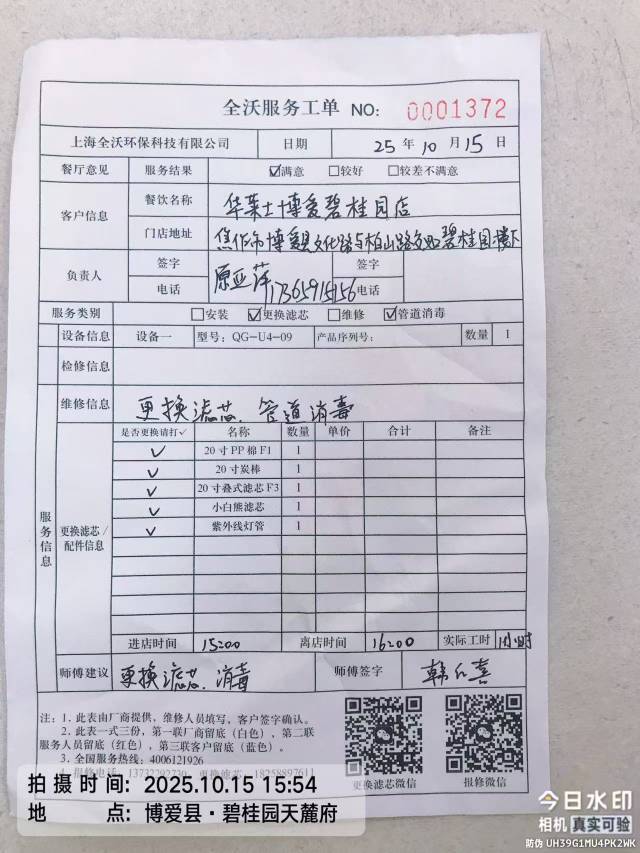 全沃服务工单 NO: 0001372
上海全沃环保科技有限公司 日期 25年10月15日
餐厅意见 服务结果 ☑满意 □较好 □较差不满意
客户信息 餐饮名称 华莱士博爱碧桂园店
门店地址 焦作市博爱县文化路与柏山路交叉碧桂园楼下
负责人 签字 原亚萍 签字
电话 17365915156 电话
服务类别 □安装 ☑更换滤芯 □维修 ☑管道消毒
设备信息 设备一 型号: QG-U4-09 产品序列号: 数量 1
检修信息
维修信息 更换滤芯、管道消毒
服务信息
更换滤芯/配件信息
是否更换请打✓ 名称 数量 单价 合计 备注
✓ 20寸PP棉F1 1
✓ 20寸炭棒 1
✓ 20寸叠式滤芯F3 1
✓ 小白熊滤芯 1
✓ 紫外线灯管 1
进店时间 15:00 离店时间 16:00 实际工时 1小时
师傅建议 更换滤芯、消毒 师傅签字
注: 1. 此表由厂商提供, 维修人员填写, 客户签字确认。
2. 此表一式三份, 第一联厂商留底（白色）, 第二联
服务人员留底（红色）, 第三联客户留底（蓝色）。
3. 全国服务热线: 4006121926
更换滤芯微信 报修微信
拍摄时间: 2025.10.15 15:54
地点: 博爱县·碧桂园天麓府
今日水印
相机 真实可验
防伪 UH39G1MU4PK2WK